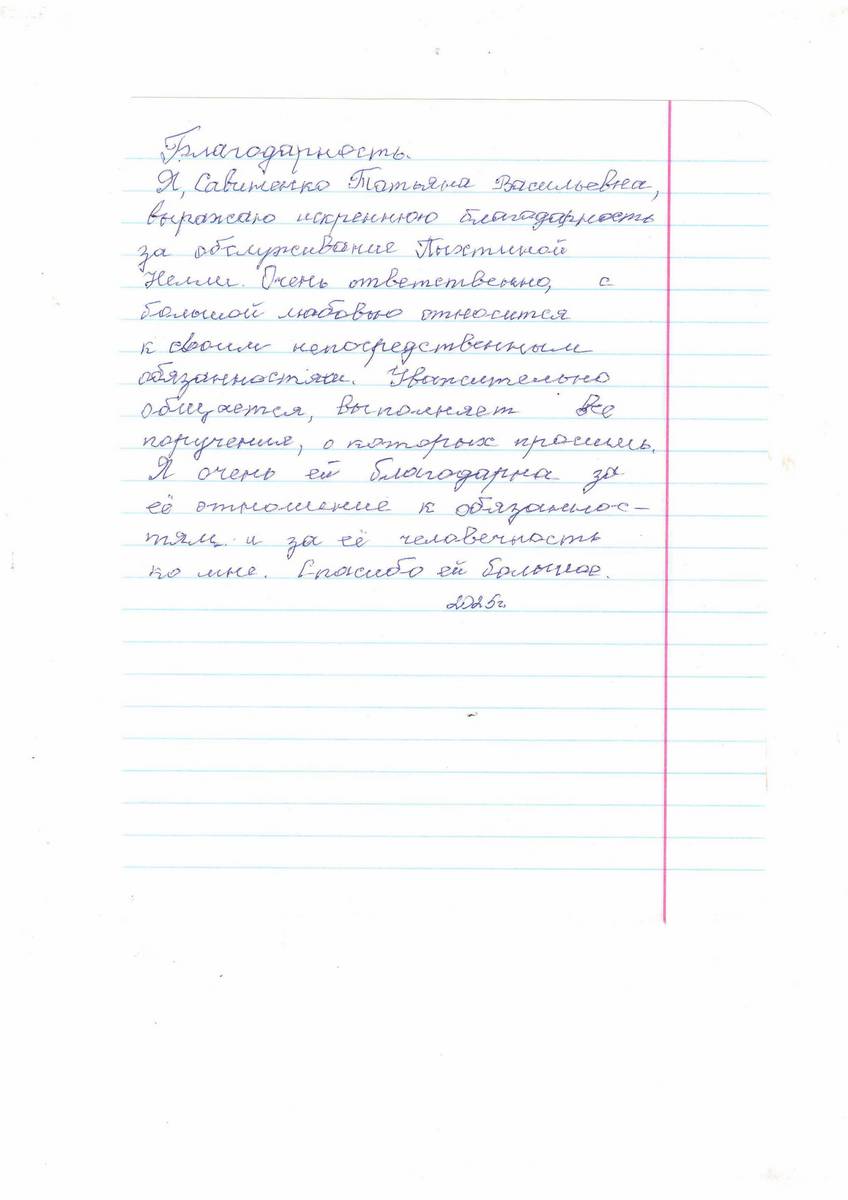 Благодарность.
Я, Савитенко Татьяна Васильевна,
выражаю искреннюю благодарность
за обслуживание Пыхтиной
Нелли. Очень ответственно, с
большой любовью относится
к своим непосредственным
обязанностям. Уважительно
общается, выполняет все
поручения, о которых просишь.
Я очень ей благодарна за
её отношение к обязаннос-
тям и за её человечность
ко мне. Спасибо ей большое.
2025г.